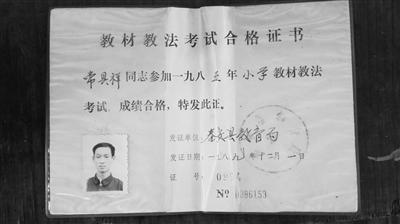 教材教法考试合格证书
常具祥同志参加一九八三年小学教材教法
考试，成绩合格，特发此证。
发证单位：秦安县教育局
发证日期：一九八 年十二月一日
证 号：
№ 0386153